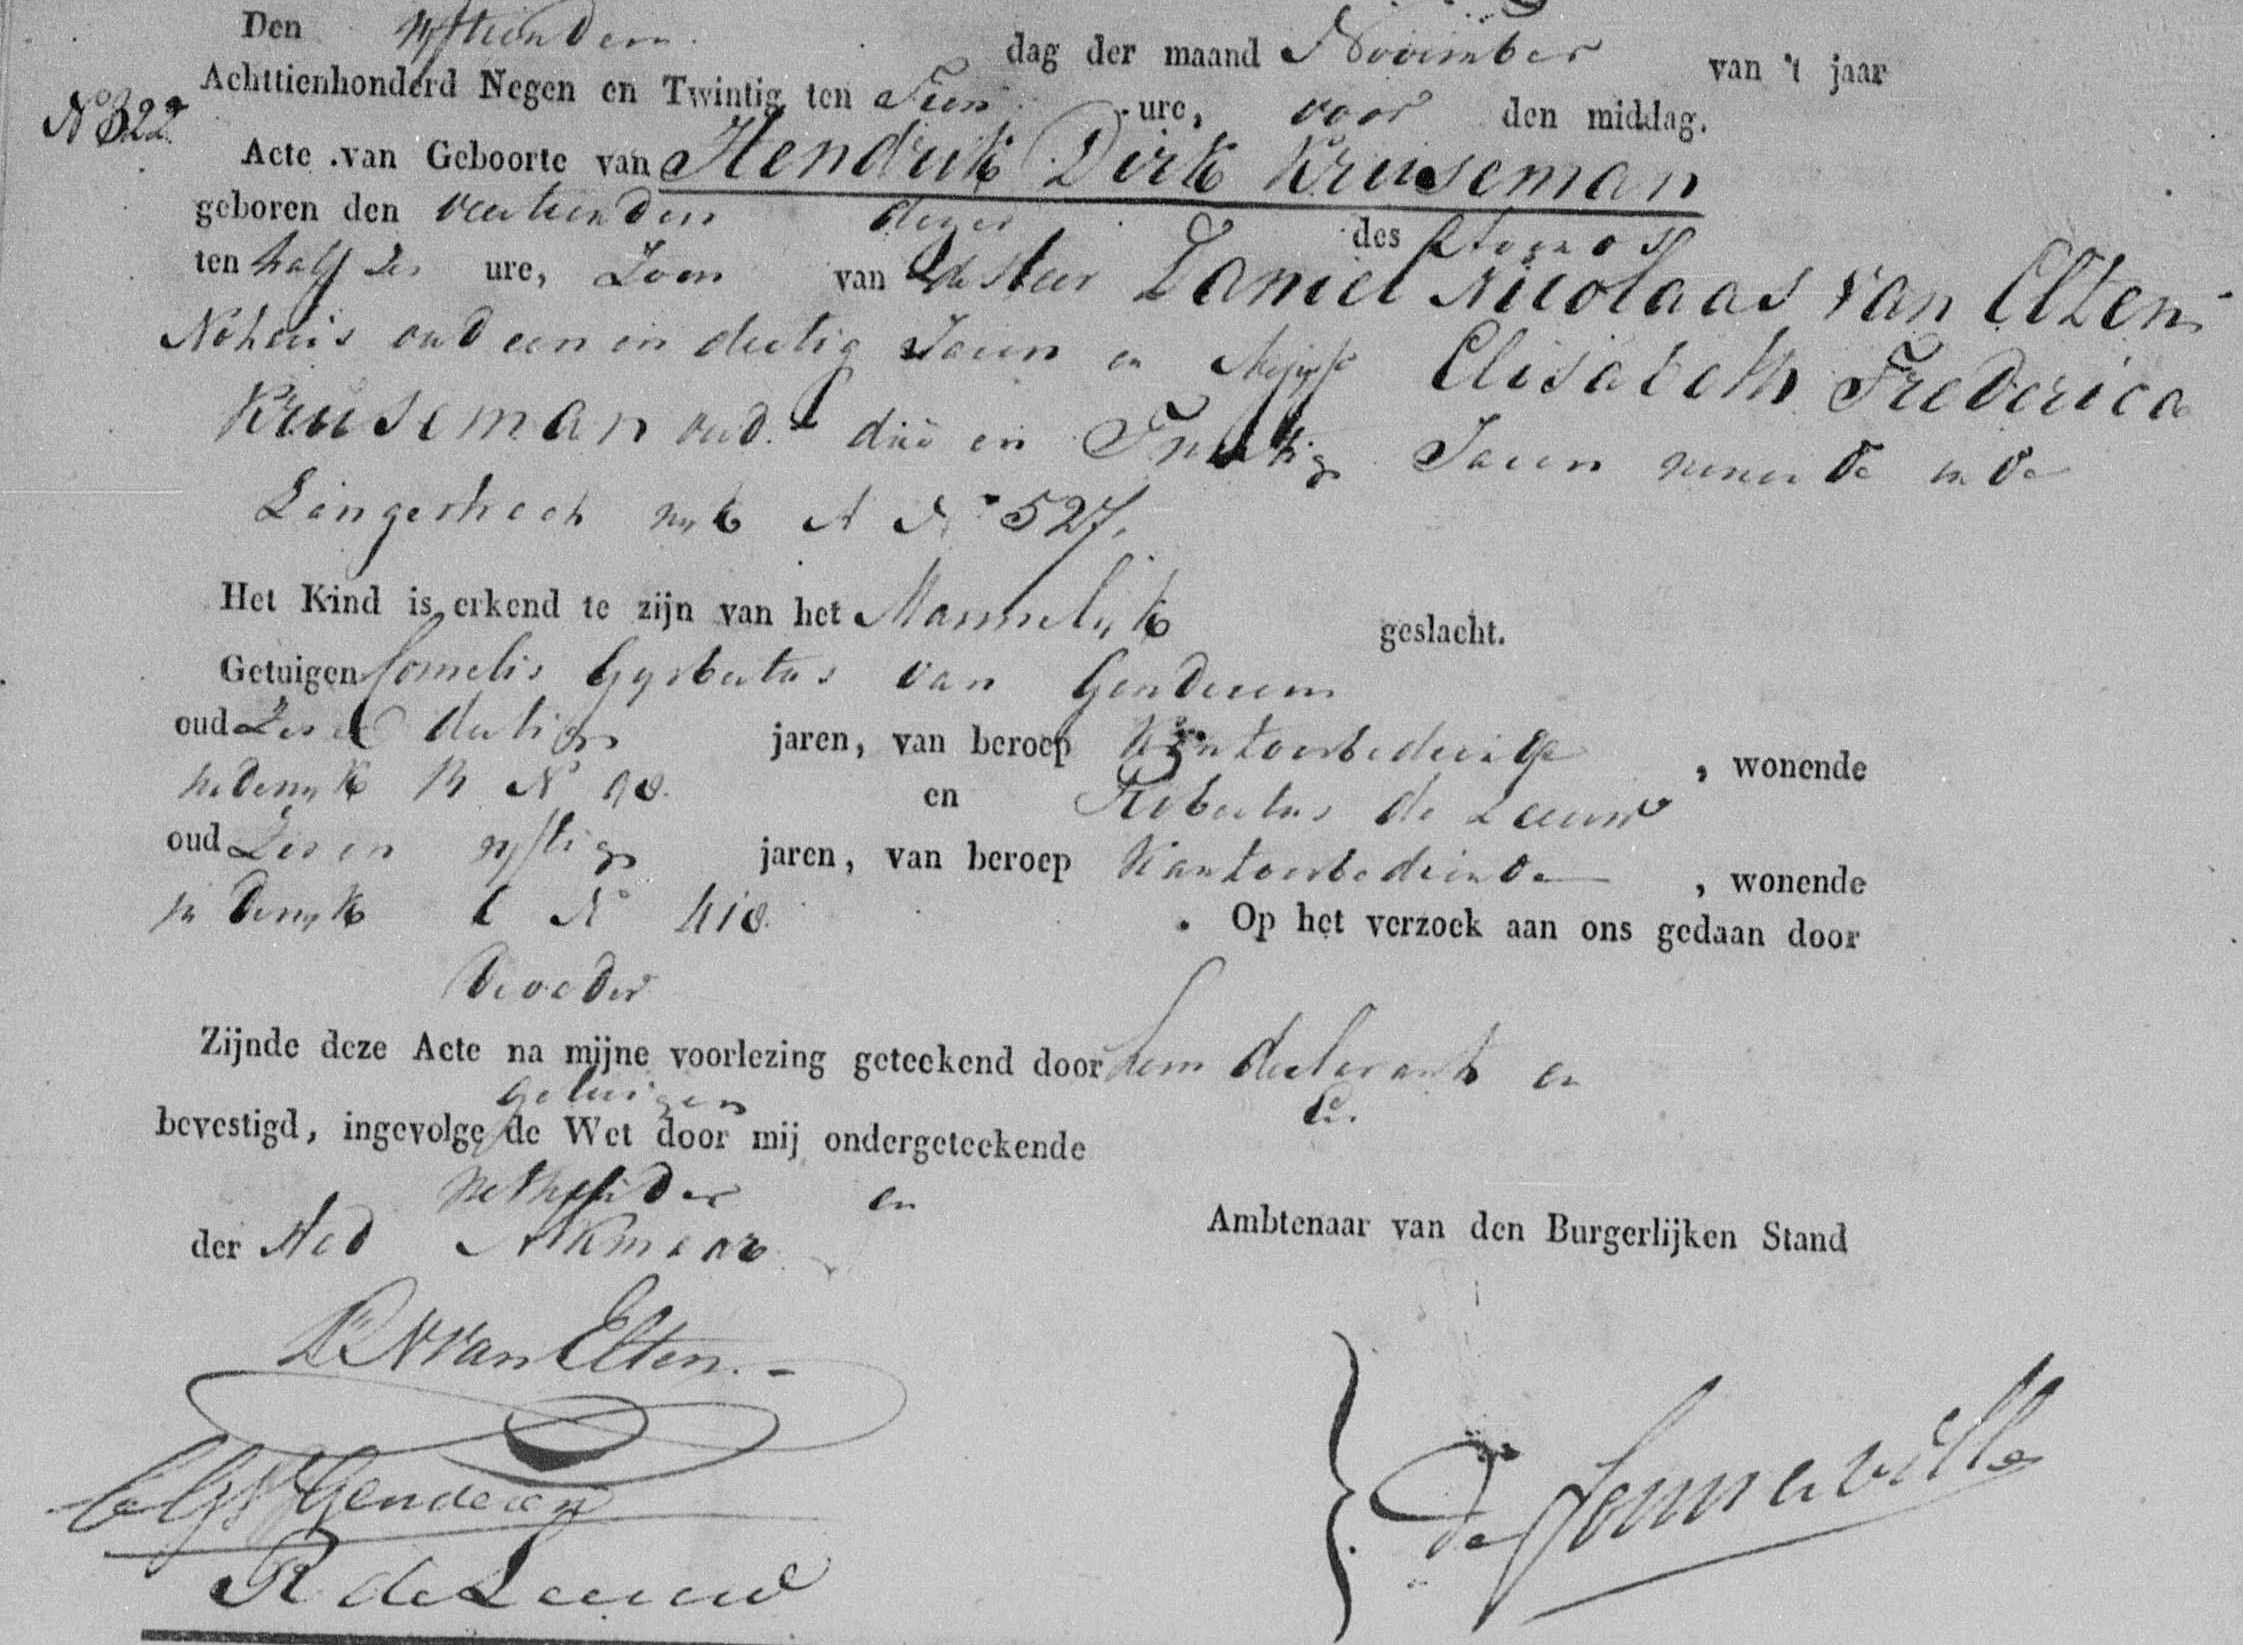 Den vyftienden dag der maand November van 't jaar
Achttienhonderd Negen en Twintig ten Tien ure, voor den middag.
N° 322
Acte van Geboorte van Hendrik Dirk Kruseman
geboren den veertienden dezer des avonds
ten half zes ure, Zoon van de Heer Daniel Nicolaas van Elten
Notaris oud een en dertig Jaren en Elisabeth Frederica
Kruseman oud drie en Twintig Jaren wonende in de
Langestraat wyk A N° 527.
Het Kind is erkend te zijn van het Mannelyk geslacht.
Getuigen Cornelis Gysbertus van Genderen
oud Zes en dertig jaren, van beroep Kantoorbediende, wonende
in de wyk B N° 98. en Robertus de Leeuw
oud Zes en vyftig jaren, van beroep Kantoorbediende, wonende
in de wyk C N° 418. Op het verzoek aan ons gedaan door
de vader
Zijnde deze Acte na mijne voorlezing geteekend door den declarant en
getuigen
bevestigd, ingevolge de Wet door mij ondergeteekende
Wethouder en Ambtenaar van den Burgerlijken Stand
der Stad Alkmaar
D N van Elten.
C G v Genderen
de Sonnaville
R de Leeuw